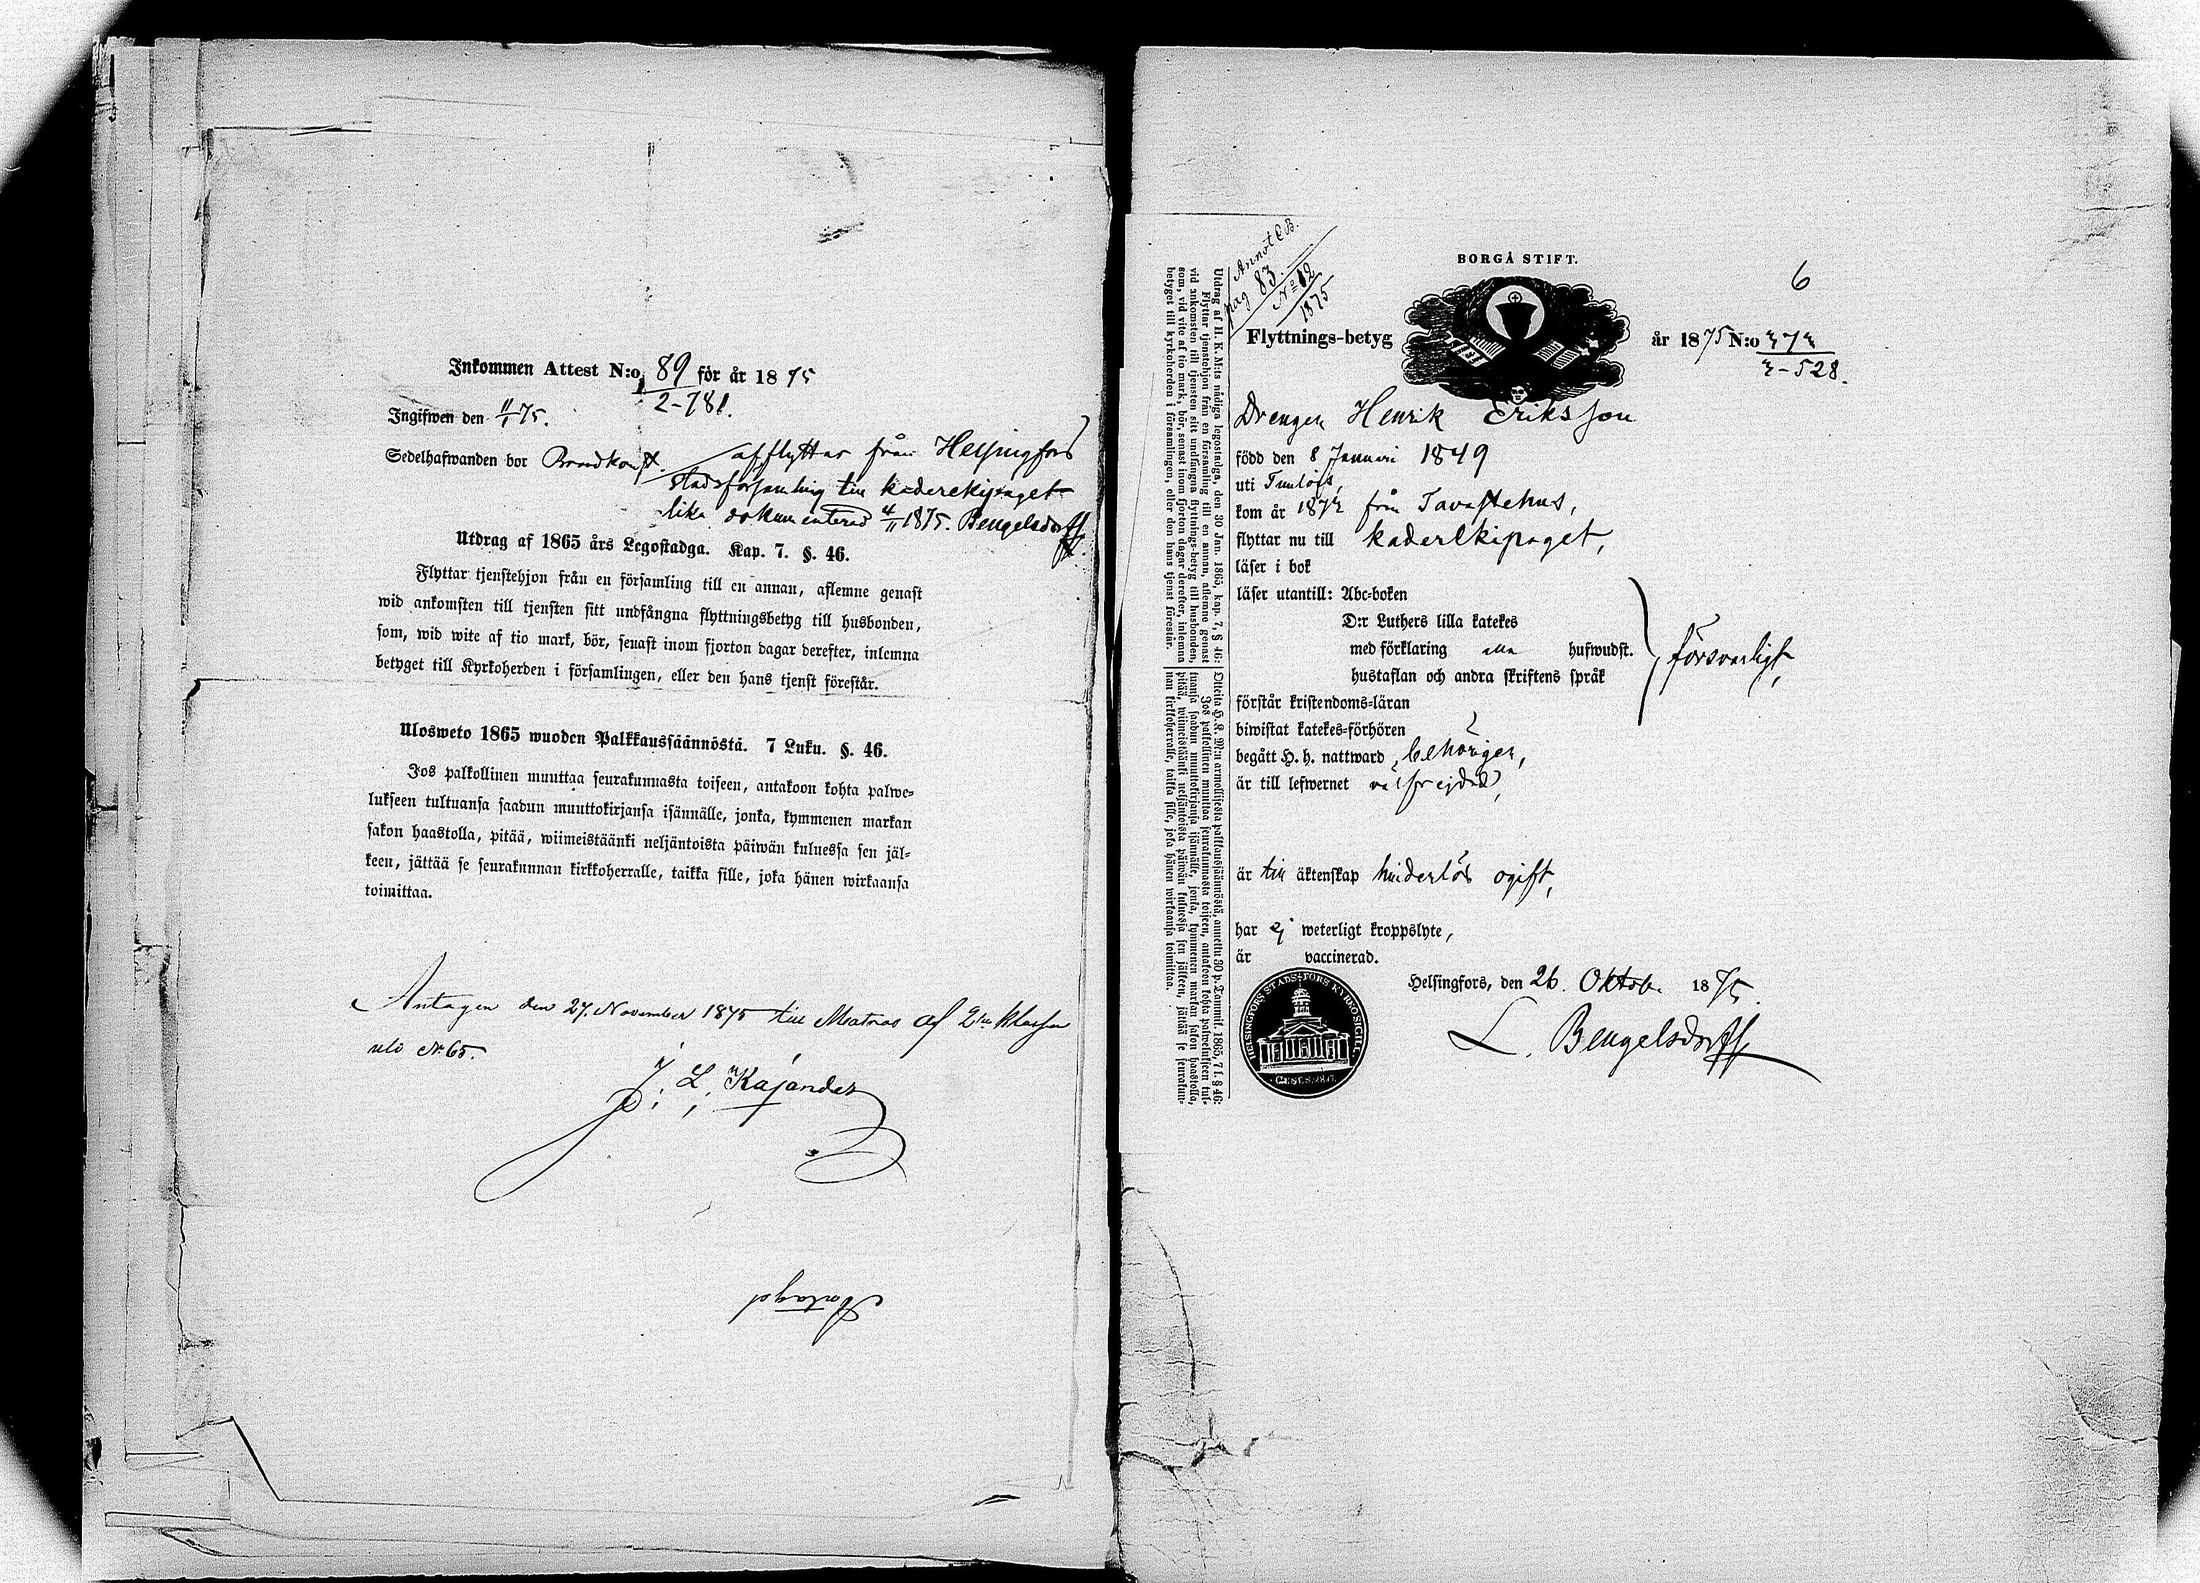 Inkommen Attest N:o 89 för år 1875
2-781.
Ingifwen den /75.
Sedelhafwanden bor afflyttar från Helsingfors
stadsförsamling till kaderekipaget
lika dokumenterad 4/11 1875. Bengelsdorff.
Utdrag af 1865 års Legostadga. Kap. 7. §. 46.
Flyttar tjenstehjon från en församling till en annan, aflemne genast
wid ankomsten till tjensten sitt undfångna flyttningsbetyg till husbonden,
som, wid wite af tio mark, bör, senast inom fjorton dagar derefter, inlemna
betyget till Kyrkoherden i församlingen, eller den hans tjenst förestår.
Ulosweto 1865 wuoden Palkkaussäännöstä. 7 Luku. §. 46.
Jos palkollinen muuttaa seurakunnasta toiseen, antakoon kohta palwe-
lukseen tultuansa saadun muuttokirjansa isännälle, jonka, kymmenen markan
sakon haastolla, pitää, wiimeistäänki neljäntoista päiwän kuluessa sen jäl-
keen, jättää se seurakunnan kirkkoherralle, taikka sille, joka hänen wirkaansa
toimittaa.
Antagen den 27. November 1875 till Matros af 2dra klassen
N:o 65.
J. L. Kajander
Utdrag af H. K. M:ts nådiga legostadga, den 30 Jan. 1865, kap. 7, § 46:
Flyttar tjenstehjon från en församling till en annan, aflemne genast
vid ankomsten till tjensten sitt undfångna flyttnings-betyg till husbonden,
som, vid vite af tio mark, bör, senast inom fjorton dagar derefter, inlemna
betyget till kyrkoherden i församlingen, eller den hans tjenst förestår.
Otteita H. K. M:n armollisesta palkkaussäännöstä, annettu 30 p. Tammik. 1865, 7 l. § 46:
Jos palkollinen muuttaa seurakunnasta toiseen, antakoon kohta palwelukseen tul-
tuansa saadun muuttokirjansa isännälle, jonka, kymmenen markan sakon haastolla,
pitää, wiimeistäänki neljäntoista päiwän kuluessa sen jälkeen, jättää se seurakun-
nan kirkkoherralle, taikka sille, joka hänen wirkaansa toimittaa.
Annot C.B.
pag 83.
N:o 12
1875
BORGÅ STIFT.
6
Flyttnings-betyg år 1875 N:o
Drengen Henrik Eriksson
född den 8 Januari 1849
uti Tuulois,
kom år från Tavastehus,
flyttar nu till kaderekipaget,
läser i bok
läser utantill: Abc-boken
D:r Luthers lilla katekes
med förklaring alla hufwudst.
hustaflan och andra skriftens språk
försvarligt,
förstår kristendoms-läran
biwistat katekes-förhören
begått H. h. nattward behörigen,
är till lefwernet välfrejdad,
är till äktenskap hinderlös ogift,
har ej weterligt kroppslyte,
är vaccinerad.
Helsingfors, den 26 Oktob. 1875.
L. Bengelsdorff
HELSINGFORS STADSFÖRS KYRKOSIGILL